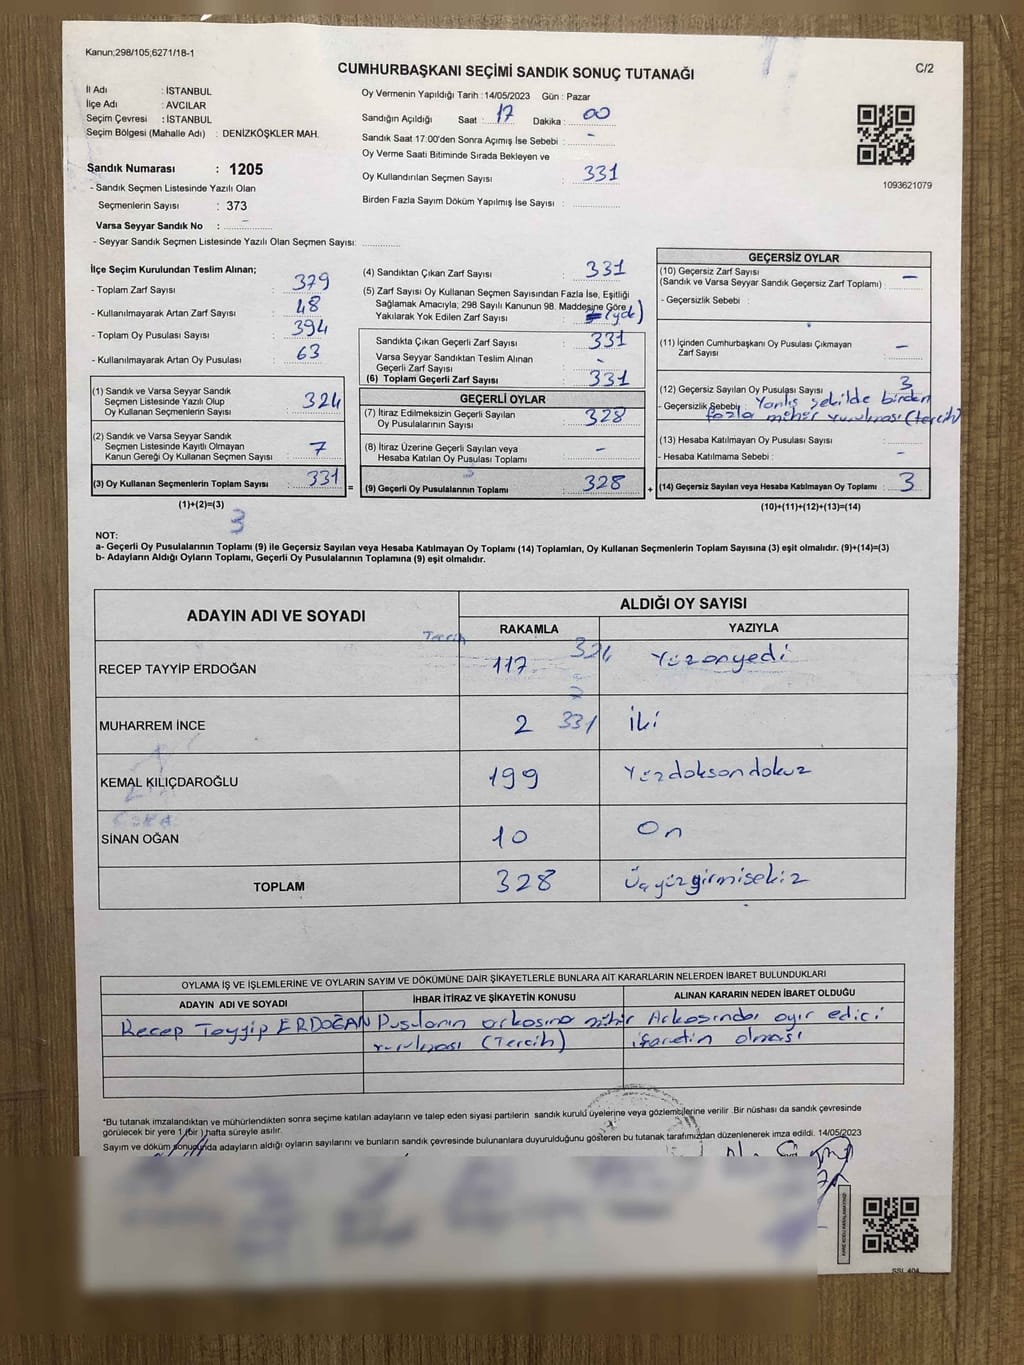 Kanun;298/105;6271/18-1
CUMHURBAŞKANI SEÇİMİ SANDIK SONUÇ TUTANAĞI
C/2
İl Adı : İSTANBUL
İlçe Adı : AVCILAR
Seçim Çevresi : İSTANBUL
Seçim Bölgesi (Mahalle Adı) : DENİZKÖŞKLER MAH.
Sandık Numarası : 1205
- Sandık Seçmen Listesinde Yazılı Olan
Seçmenlerin Sayısı : 373
Varsa Seyyar Sandık No : -
- Seyyar Sandık Seçmen Listesinde Yazılı Olan Seçmen Sayısı:
Oy Vermenin Yapıldığı Tarih :14/05/2023 Gün : Pazar
Sandığın Açıldığı Saat : 17 Dakika : 00
Sandık Saat 17:00'den Sonra Açımış İse Sebebi : -
Oy Verme Saati Bitiminde Sırada Bekleyen ve
Oy Kullandırılan Seçmen Sayısı : 331
Birden Fazla Sayım Döküm Yapılmış İse Sayısı :
1093621079
İlçe Seçim Kurulundan Teslim Alınan;
- Toplam Zarf Sayısı : 379
- Kullanılmayarak Artan Zarf Sayısı : 48
- Toplam Oy Pusulası Sayısı : 394
- Kullanılmayarak Artan Oy Pusulası : 63
(1) Sandık ve Varsa Seyyar Sandık
Seçmen Listesinde Yazılı Olup
Oy Kullanan Seçmenlerin Sayısı : 324
(2) Sandık ve Varsa Seyyar Sandık
Seçmen Listesinde Kayıtlı Olmayan
Kanun Gereği Oy Kullanan Seçmen Sayısı : 7
(3) Oy Kullanan Seçmenlerin Toplam Sayısı : 331 =
(1)+(2)=(3)
3
(4) Sandıktan Çıkan Zarf Sayısı : 331
(5) Zarf Sayısı Oy Kullanan Seçmen Sayısından Fazla İse, Eşitliği
Sağlamak Amacıyla; 298 Sayılı Kanunun 98. Maddesine Göre
Yakılarak Yok Edilen Zarf Sayısı : (yok)
Sandıkta Çıkan Geçerli Zarf Sayısı : 331
Varsa Seyyar Sandıktan Teslim Alınan
Geçerli Zarf Sayısı : -
(6) Toplam Geçerli Zarf Sayısı : 331
GEÇERLİ OYLAR
(7) İtiraz Edilmeksizin Geçerli Sayılan
Oy Pusulalarının Sayısı : 328
(8) İtiraz Üzerine Geçerli Sayılan veya
Hesaba Katılan Oy Pusulası Toplamı : -
(9) Geçerli Oy Pusulalarının Toplamı : 328 +
GEÇERSİZ OYLAR
(10) Geçersiz Zarf Sayısı
(Sandık ve Varsa Seyyar Sandık Geçersiz Zarf Toplamı) : -
- Geçersizlik Sebebi :
(11) İçinden Cumhurbaşkanı Oy Pusulası Çıkmayan
Zarf Sayısı : -
(12) Geçersiz Sayılan Oy Pusulası Sayısı : 3
- Geçersizlik Sebebi : Yanlış şekilde birden
fazla mühür vurulması (tercih)
(13) Hesaba Katılmayan Oy Pusulası Sayısı :
- Hesaba Katılmama Sebebi : -
(14) Geçersiz Sayılan veya Hesaba Katılmayan Oy Toplamı : 3
(10)+(11)+(12)+(13)=(14)
NOT:
a- Geçerli Oy Pusulalarının Toplamı (9) ile Geçersiz Sayılan veya Hesaba Katılmayan Oy Toplamı (14) Toplamları, Oy Kullanan Seçmenlerin Toplam Sayısına (3) eşit olmalıdır. (9)+(14)=(3)
b- Adayların Aldığı Oyların Toplamı, Geçerli Oy Pusulalarının Toplamına (9) eşit olmalıdır.
ADAYIN ADI VE SOYADI
ALDIĞI OY SAYISI
RAKAMLA YAZIYLA
Tercih
RECEP TAYYİP ERDOĞAN 117 324 Yüzonyedi
7
MUHARREM İNCE 2 331 İki
KEMAL KILIÇDAROĞLU 199 Yüzdoksandokuz
SİNAN OĞAN 10 On
TOPLAM 328 Üçyüzyirmisekiz
OYLAMA İŞ VE İŞLEMLERİNE VE OYLARIN SAYIM VE DÖKÜMÜNE DAİR ŞİKAYETLERLE BUNLARA AİT KARARLARIN NELERDEN İBARET BULUNDUKLARI
ADAYIN ADI VE SOYADI İHBAR İTİRAZ VE ŞİKAYETİN KONUSU ALINAN KARARIN NEDEN İBARET OLDUĞU
Recep Tayyip ERDOĞAN Pusulanın arkasına mühür Arkasında ayır edici
vurulması (Tercih) işaretin olması
*Bu tutanak imzalandıktan ve mühürlendikten sonra seçime katılan adayların ve talep eden siyasi partilerin sandık kurulu üyelerine veya gözlemcilerine verilir .Bir nüshası da sandık çevresinde
görülecek bir yere 1 (bir ) hafta süreyle asılır.
Sayım ve döküm sonucunda adayların aldığı oyların sayılarını ve bunların sandık çevresinde bulunanlara duyurulduğunu gösteren bu tutanak tarafımızdan düzenlenerek imza edildi. 14/05/2023